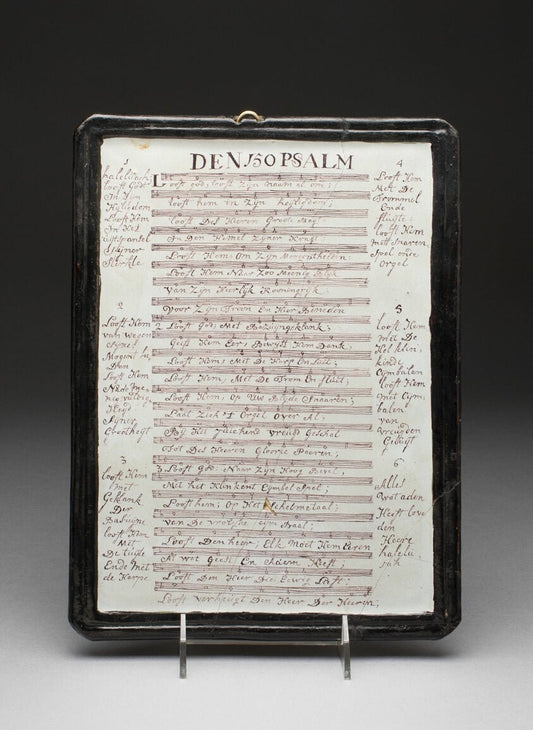 DEN 150 PSALM
1
looft Godt
In Zyn
Heyligdom
Looft Hem
In Het
uitspansel
Sijner
Sterkte
2
Looft Hem
van wegen
Sijnen
Mogent he,
den
looft Hem
Na de me,
nigvuldig,
Heyd
Sijner
Grootheyt
3
looft Hem
met
Geklank
Der
Basuyne
looft Hem
Met
De Luyte
Ende Met
de Harpe
Looft god; looft Zyn naam al om;
looft hem in Zyn heyligdom;
looft Des Heeren Groote Magt
In Den Hemel Zyner Kragt
Looft Hem; Om Zyn Mogentheden
Looft Hem, Naar Zoo Menig Blyk
Van Zyn Heerlyk Koningryk;
Voor Zyn Troon En Hier Beneden
2 Looft God; Met Bazuyngeklank;
Geeft Hem Eer; Bewyst Hem Dank;
Looft Hem; Met D Harp En Luit;
Looft Hem; Met De Trom En fluit;
Looft Hem; Op Uwe Blyde Snaaren;
Laat Zich 't Orgel Over Al;
Bij Het Juichend vreugd Geschal
Tot Des Heeren Glorie Paaren;
3. Looft God; Naar Zyn Hoog Bevel,
Met Het Klinkent Cymbel Spel;
Looft hem; Op Het Schelmetaal;
Van De vrolyke Cymbaal;
Looft Den heer; Elk Moet Hem Eeren
Al wat Geest En Adem Heeft;
Looft Den Heer Die Eewig Leeft;
Looft verheugt Den Heer Der Heeren;
4
Looft Hem
Met De
Trommel
Ende
fluyte
looft Hem
mett snaren
Spel ende
Orgel
5
looft Hem
met De
Hel klin,
kende
Cymbalen
looft Hem
met Cym,
balen
van
vreugden
Geluyt
6
Alles
Wat aden
Heeft love
den
Heere
hallelu,
jah